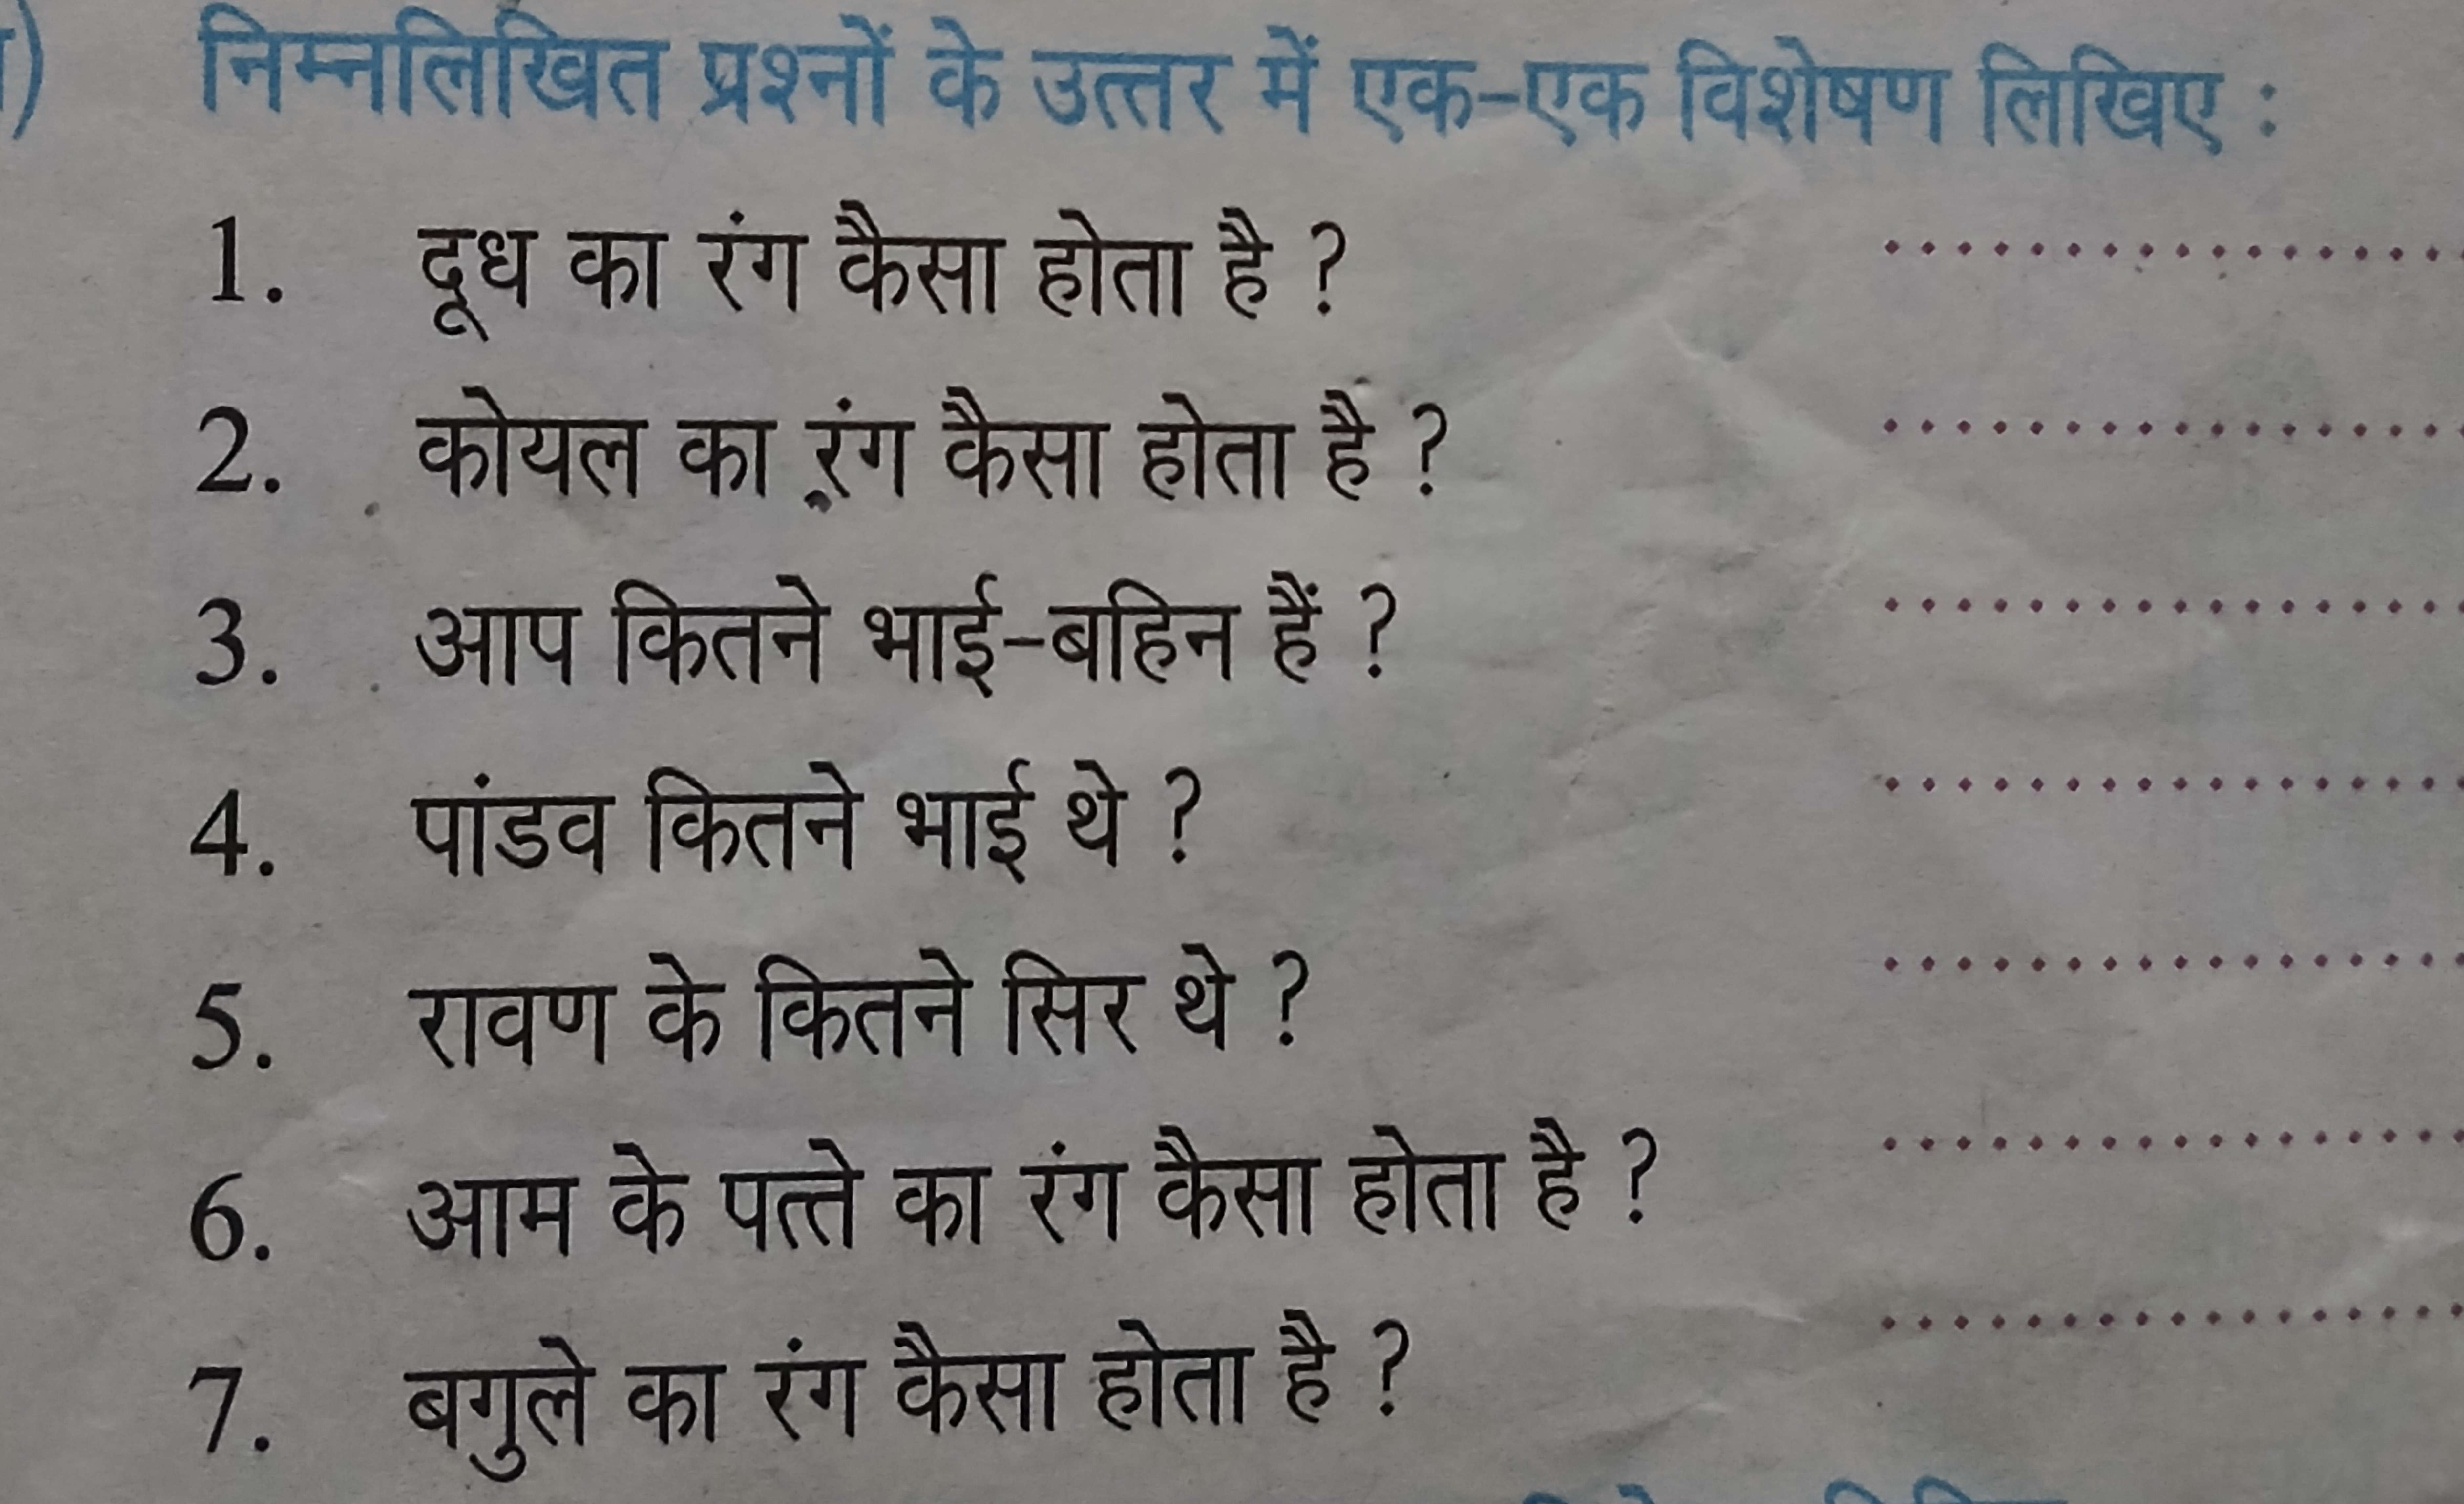 निम्नलिखित प्रश्नों के उत्तर में एक-एक विशेषण लिखिए :
1. दूध का रंग कैसा होता है ? ..................
2. कोयल का रंग कैसा होता है ? ..................
3. आप कितने भाई-बहिन हैं ? ..................
4. पांडव कितने भाई थे ? ..................
5. रावण के कितने सिर थे ? ..................
6. आम के पत्ते का रंग कैसा होता है ? ..................
7. बगुले का रंग कैसा होता है ? ..................